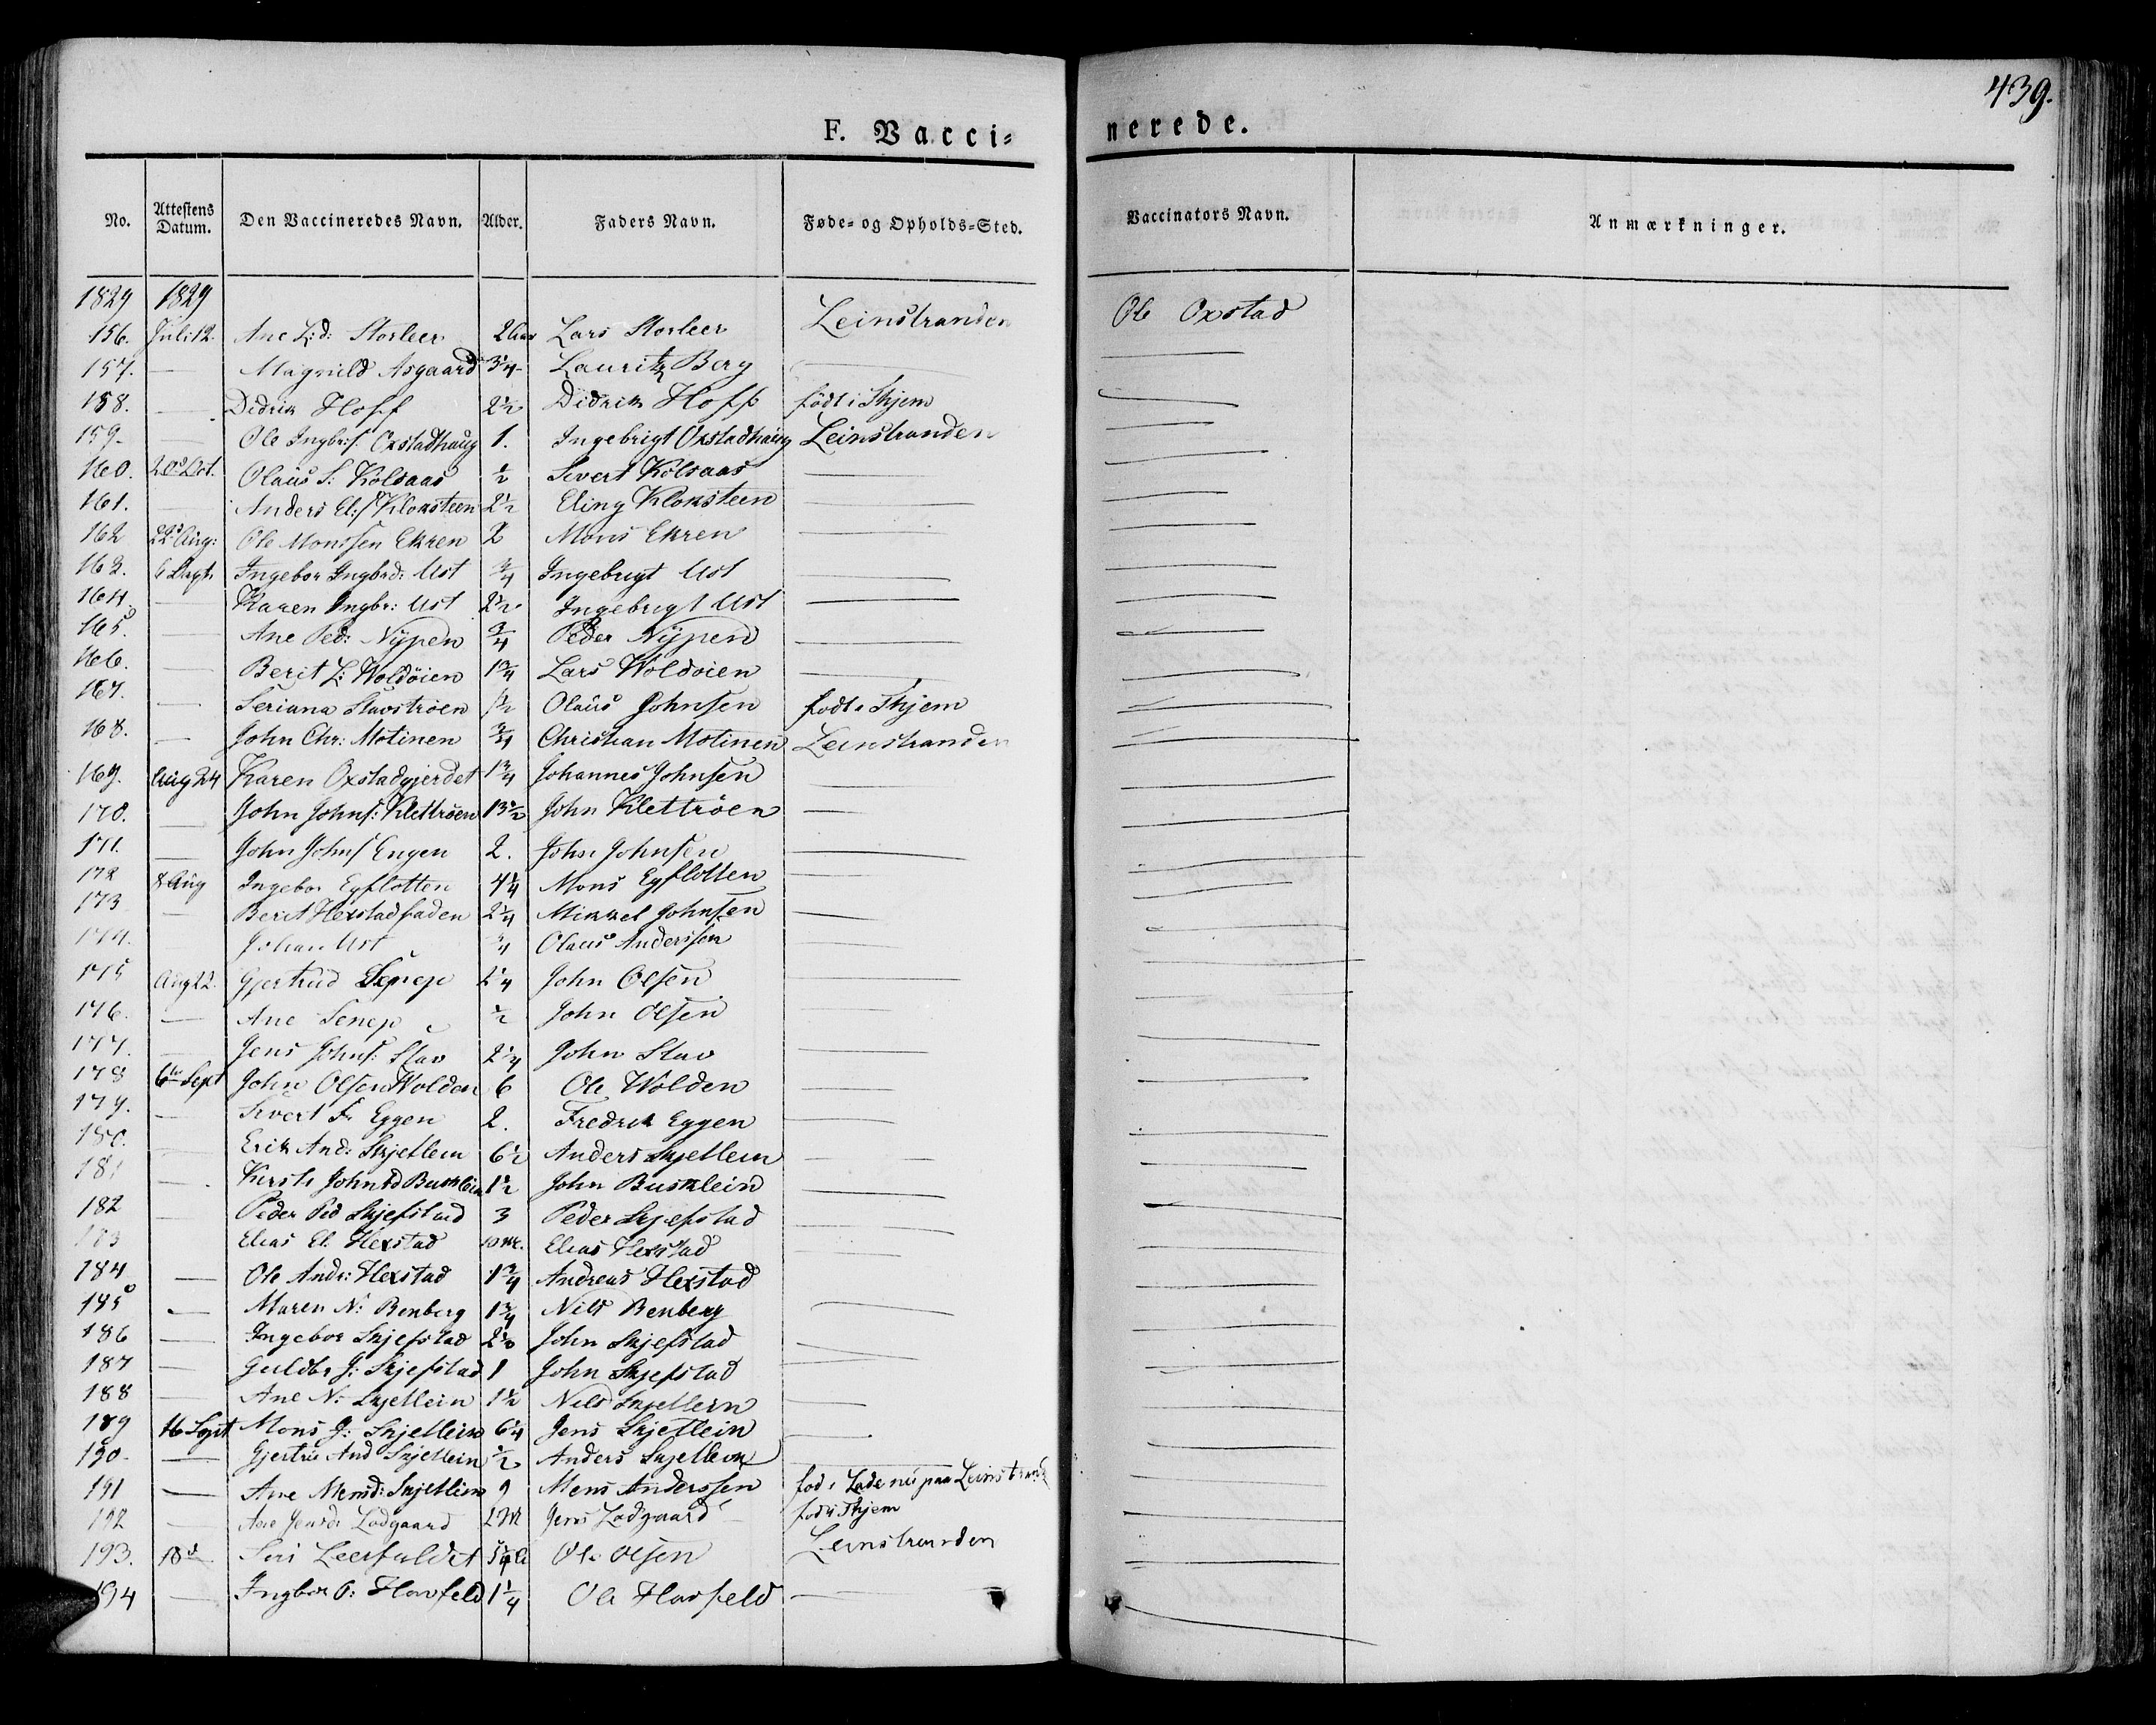 439.
F. Vacci=
nerede.
No. Attestens Datum. Den Vaccineredes Navn. Alder. Faders Navn. Føde= og Opholds=Sted. Vaccinators Navn. Anmærkninger.
1829 1829
156. Juli 12. Ane L:d: Storleer 2 Aar Lars Storleer Leinstranden Ole Oxstad
157. — Magnild Asgaard 3/4 Lauritz Berg —
158. — Didrik Hoff 2 1/2 Didrik Hoff födt i Skjem —
159. — Ole Ingbr:s. Oxstadhaug 1. Ingebrigt Oxstadhaug Leinstranden —
160. 20d Oct. Olaüs S: Kolsaas 1/2 Sivert Kolsaas — —
161. Anders El:s Kloksteen 2 1/2 Eling Kloksteen — —
162 22d Aug: Ole Monssen Ekren 2 Mons Ekren — —
163. 6 Sept. Ingebor Ingbrd: Ust 3/4 Ingebrigt Ust — —
164. — Karen Ingbr: Ust 2 1/2 Ingebrigt Ust — —
165. — Ane Ped: Nÿpen 3/4 Peder Nÿpen — —
166. — Berit L: Woldöien 1 3/4 Lars Woldöien — —
167. — Seriana Stavströen 1/2 Olaüs Johnsen födt i Skjem —
168. — John Chr: Motinen 3/4 Christian Motinen Leinstranden —
169. Aug 24 Karen Oxstadgjerdet 1 3/4 Johannes Johnsen — —
170. — John Johns: Klettröen 13 1/2 John Klettröen — —
171. — John Johns Engen 2. John Johnsen — —
172 8 Aug Ingebor Egflotten 4 1/4 Mons Egflotten — —
173 — Berit Hexstadfaden 2 1/4 Mikkel Johnsen — —
174. Johan Ust 3/4 Olaus Anderssen — —
175 Aug 22. Gjertrud Senep 2 1/4 John Olsen — —
176. — Ane Senep 1/2 John Olsen — —
177. — Jens Johns: Stav 2 1/4 John Stav — —
178 6te Sept John Olsen Wolden 6 Ole Wolden — —
179. — Sivert F: Eggen 2. Fredrik Eggen — —
180. — Erik And: Skjetlein 6 1/2 Anders Skjetlein — —
181 — Kirsti Johnsd Busklein 1 1/2 John Busklein — —
182 — Peder Ped Skjefstad 3 Peder Skjefstad — —
183 Elias El: Hexstad 10 Elias Hexstad — —
184 — Ole Andr: Hexstad 1 3/4 Andreas Hexstad —
185 — Maren N: Benberg 1 3/4 Nils Benberg — —
186 — Ingebor Skjefstad 2 1/2 John Skjefstad — —
187 — Guldbr J: Skjefstad 1 John Skjefstad — —
188 — Ane N: Skjetlein 1 1/2 Nils Skjetlein — —
189 16 Sept Mons J: Skjetlein 6 1/4 Jens Skjetlein — —
190. — Gjertrü And Skjetlein 1/2 Anders Skjetlein — —
191 — Ane Monsd: Skjetlein 9 Mons Anderssen föd i Lade nü paa Leinstrand —
192 — Ane Jensd: Lodgaard 2 M Jens Lodgaard föd i Skjem —
193. 18d — Siri Leerfaldet Ole Olsen Leinstranden —
194 — Ingbor O: Havfeld 1 1/4 Ole Havfeld — —